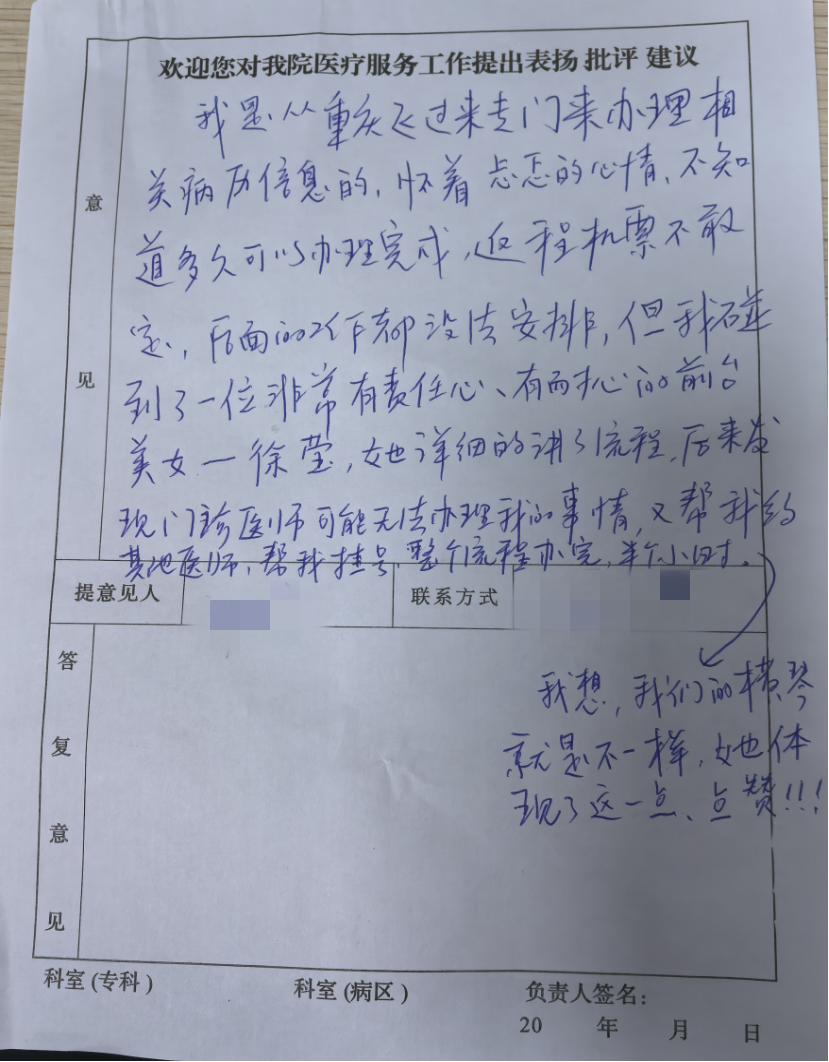 欢迎您对我院医疗服务工作提出表扬 批评 建议
意见
我是从重庆飞过来专门来办理相
关病历信息的,怀着忐忑的心情,不知
道多久可以办理完成,返程机票不敢
定,后面的工作都没法安排,但我碰
到了一位非常有责任心、有耐心的前台
美女—徐莹,她详细的讲了流程,后来发
现门诊医师可能无法办理我的事情,又帮我约
其他医师,帮我挂号,整个流程办完,半个小时。
提意见人
联系方式
答复意见
我想,我们的横琴
就是不一样,她体
现了这一点、点赞!!!
科室(专科) 科室(病区) 负责人签名:
20 年 月 日